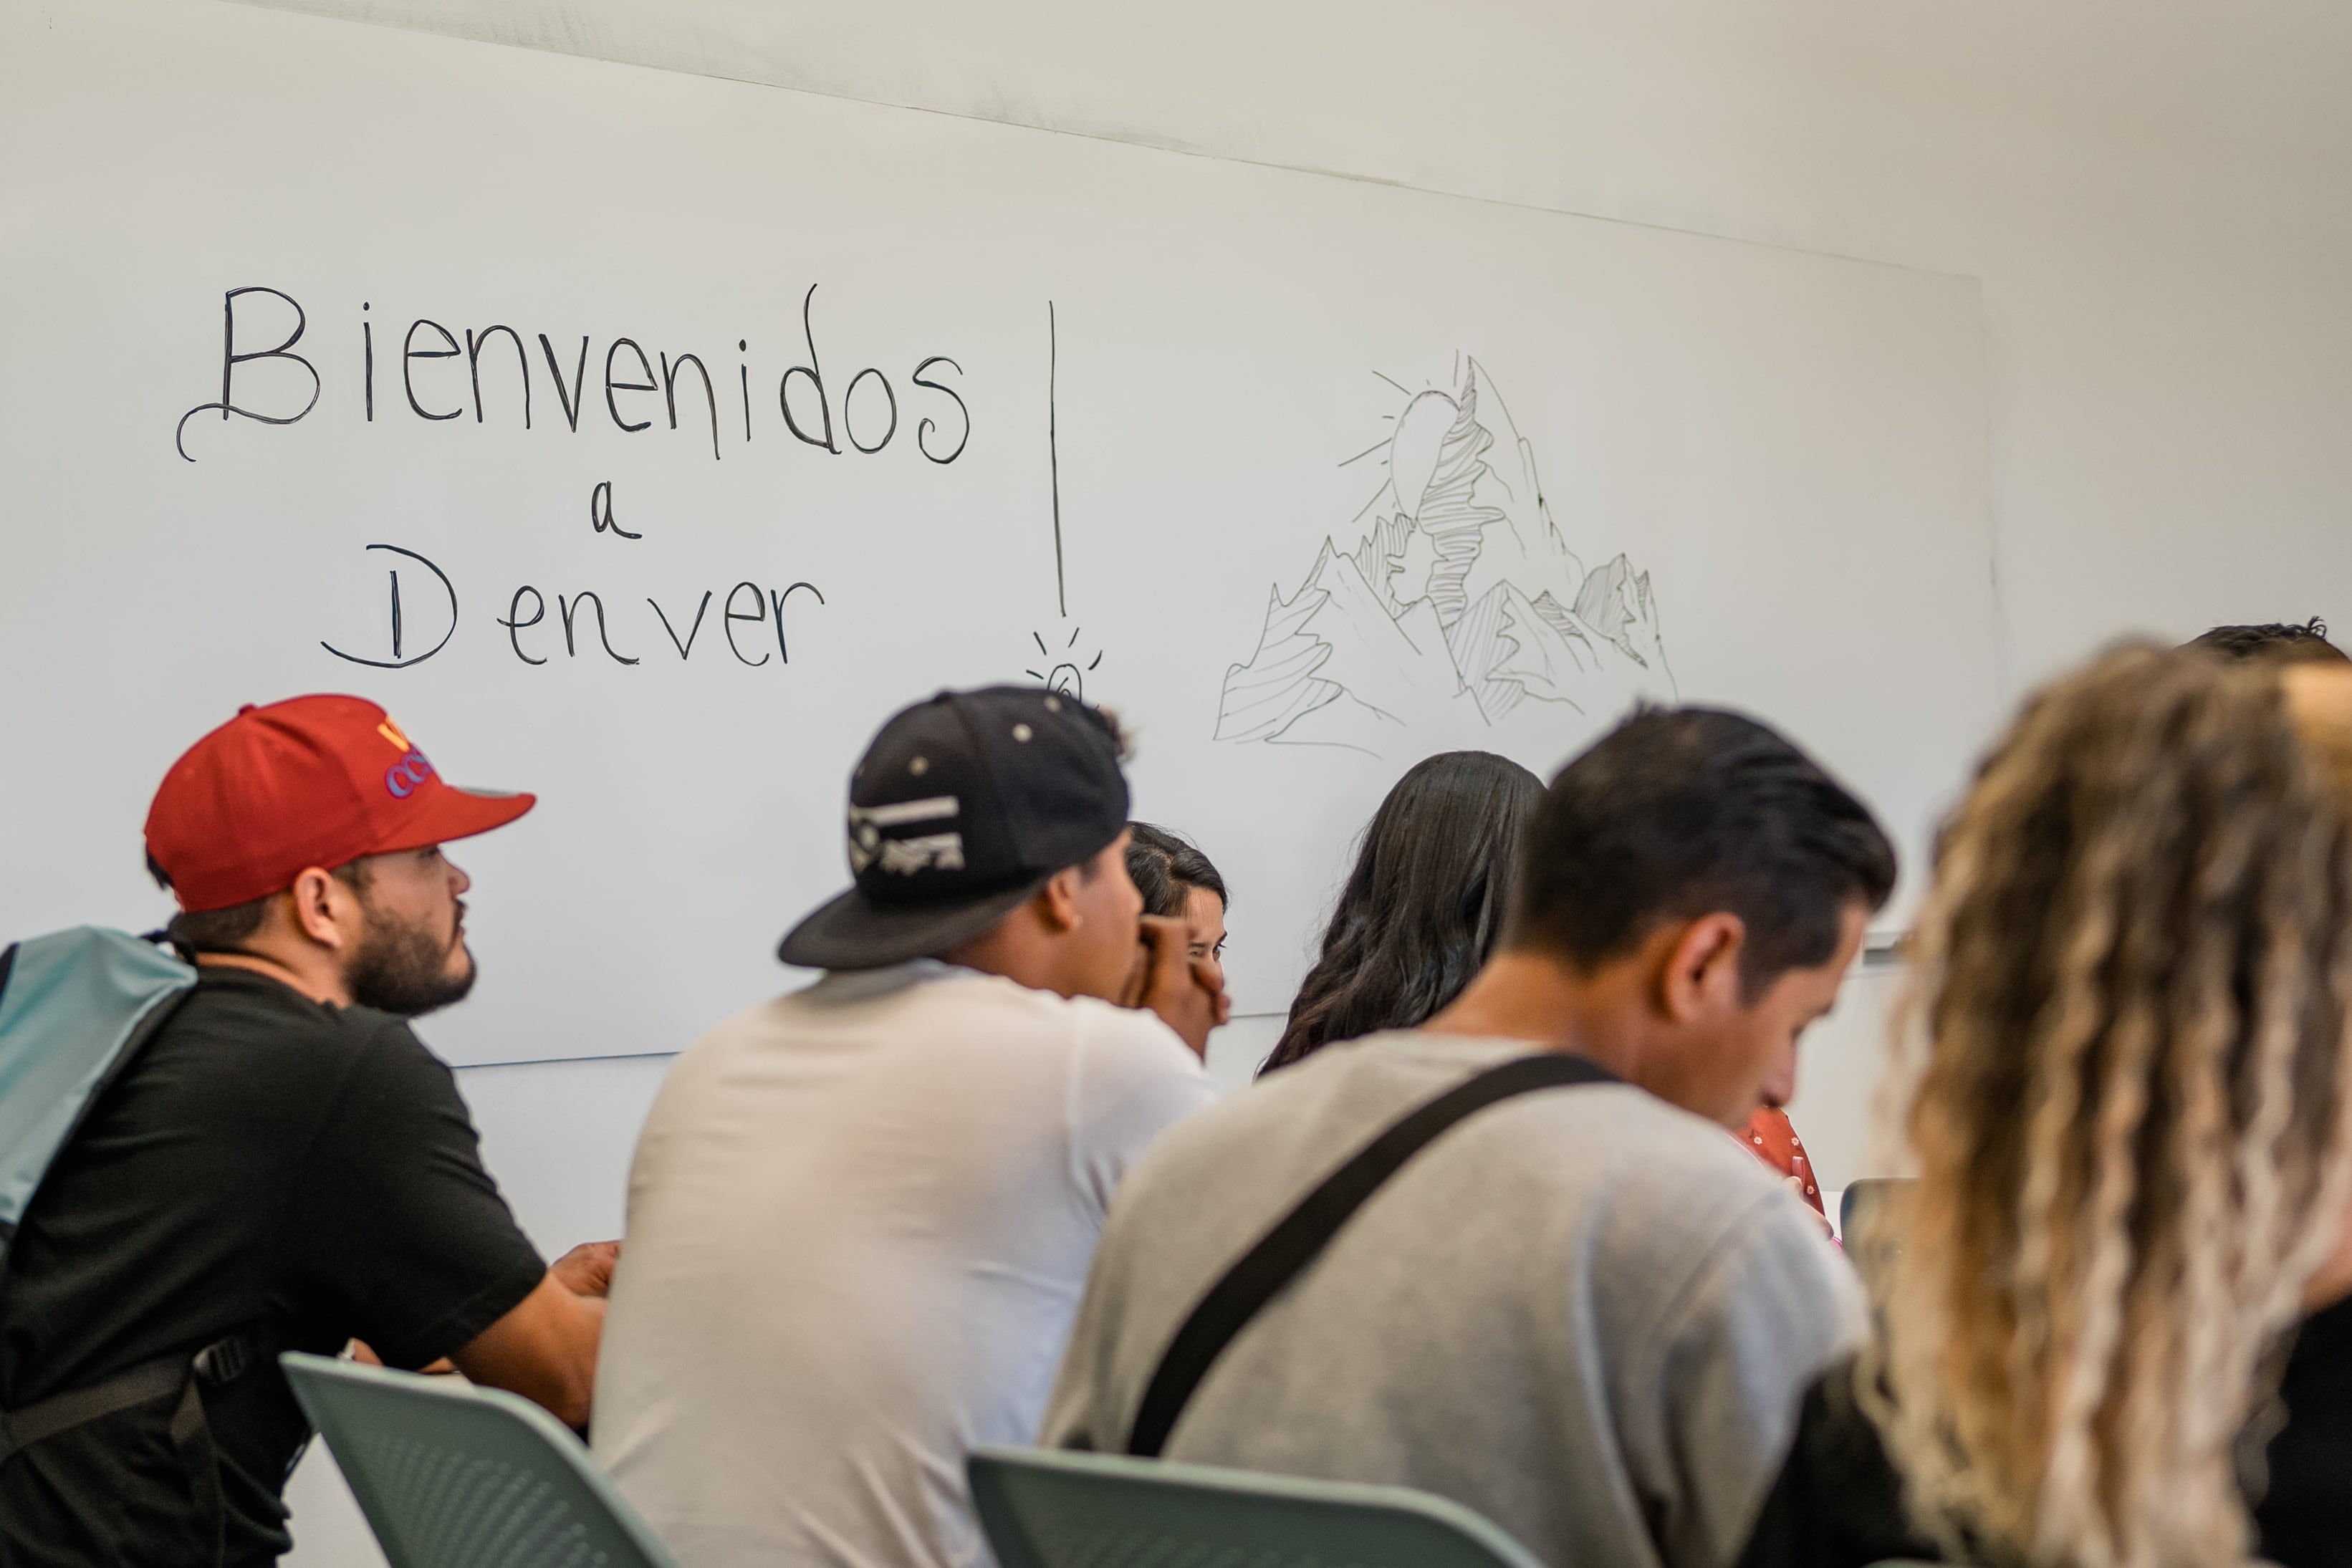 Bienvenidos
a
Denver